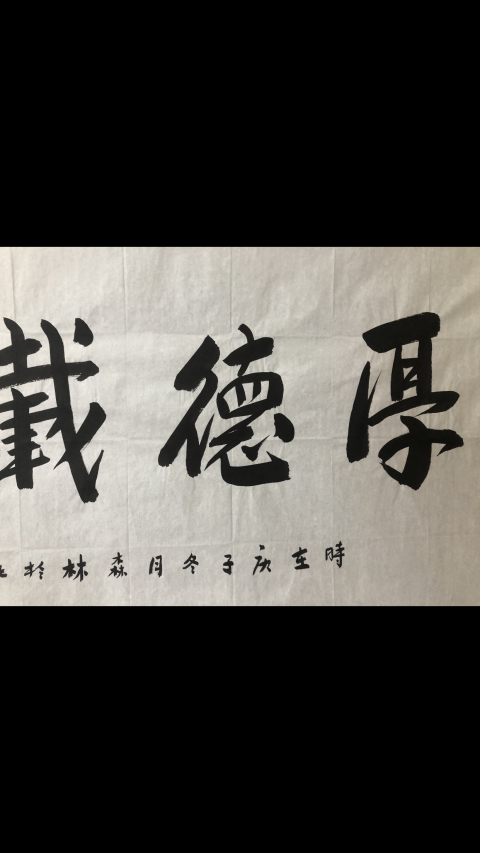 厚德載
時在庚子冬月森林於